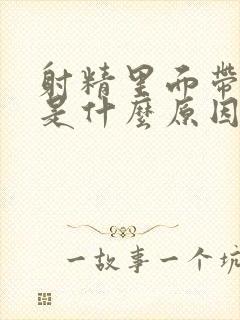 射精里面带
是什麼原因
一故事一个坑